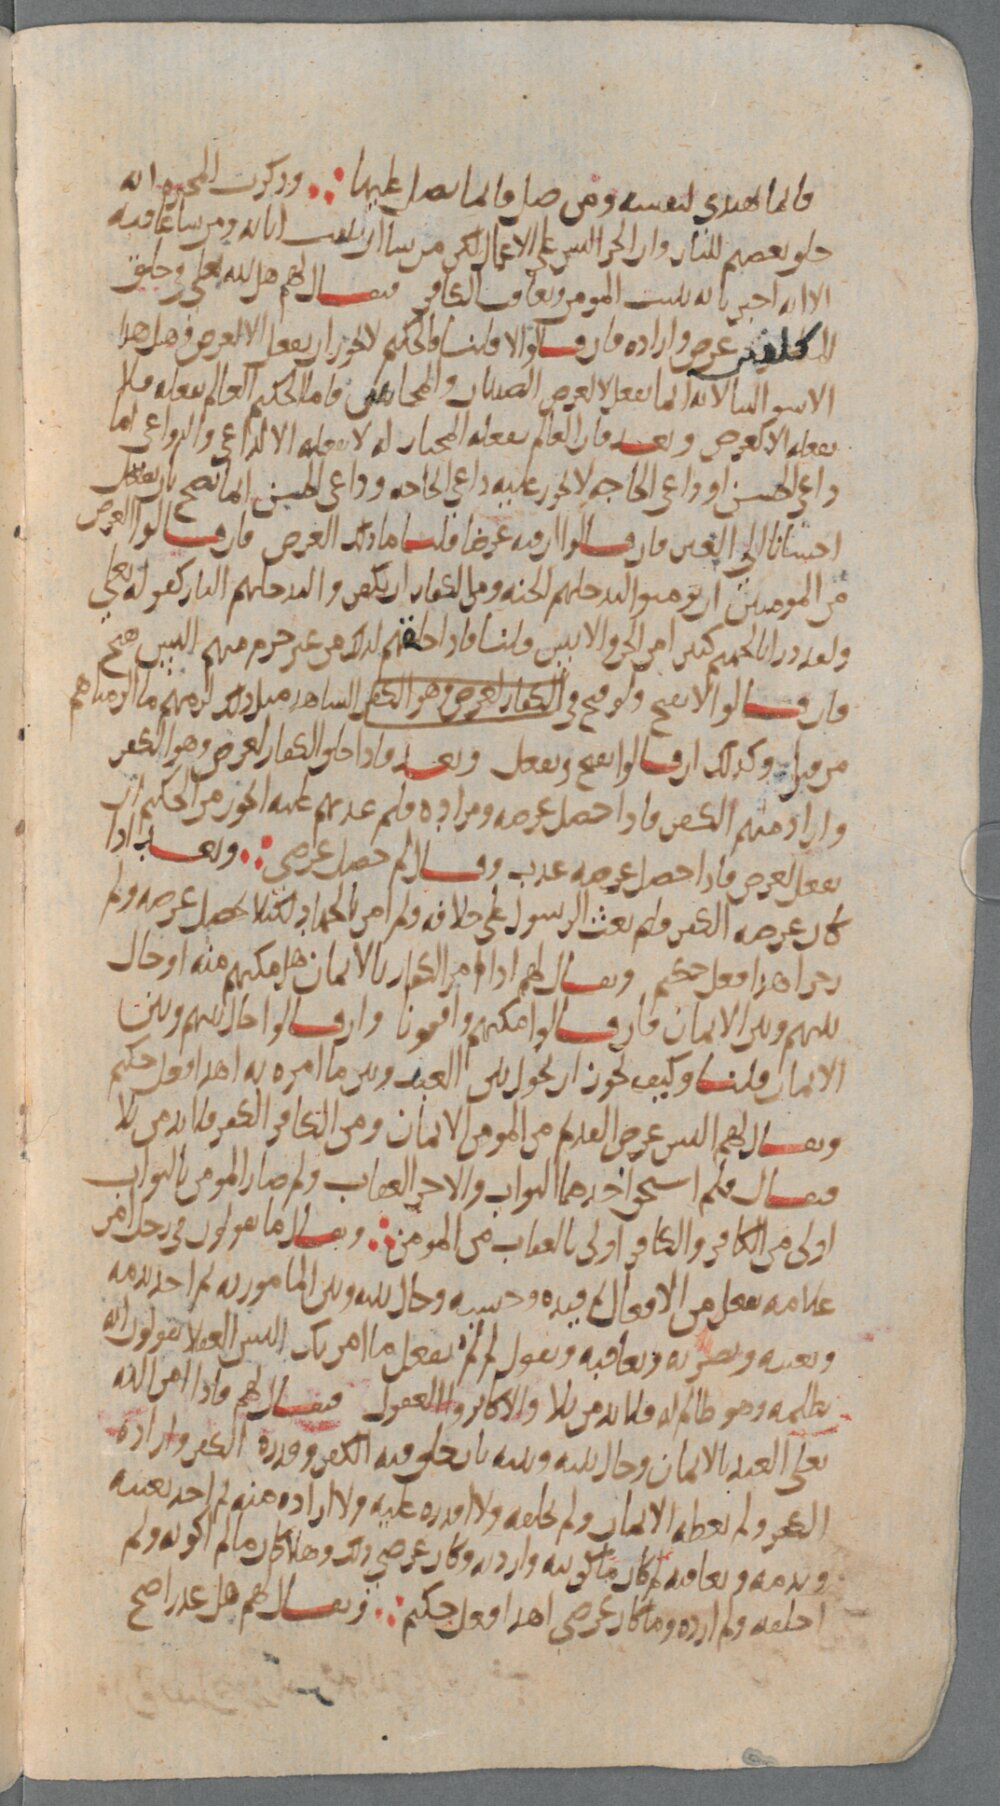 فانما يهتدي لنفسه ومن ضل فانما يضل عليها ∴ وذكرت المجبرة انه
خلق بعضهم للنار وان الجزا ليس على الاعمال لكن من شا ان يثيب اثابه ومن شا عاقبه
الا انه اخبر بانه يثيب المومن ويعاقب الكافر فيقال لهم هل لله تعالى في خلق
المكلفين غرض واراده فان قالوا لا قلنا فالحكيم لا يجوز ان يفعل الا لغرض وهل هذا
الا سوالنا لانه انما يفعل لا لغرض الصبيان والمجانين فاما الحكيم العالم بفعله فلا
يفعله الا لغرض وبعد فان العالم بفعله المختار له لا يفعله الا لداعي والدواعي اما
داعي الحسن او داعي الحاجه لا يجوز عليه داعي الحاجه وداعي الحسن انما يصح بان يفعل
احسانا الى الغير فان قالوا ان فيه غرضا قلنا ما ذلك الغرض فان قالوا الغرض
من المومنين ان يومنوا ليدخلهم الجنه ومن الكفار ان يكفروا ليدخلهم النار كقوله تعالى
ولقد ذرانا لجهنم كثيرا من الجن والانس قلنا فاذا خلقهم لذلك من غير جرم منهم اليس قبح
فان قالوا لا يقبح ولو قبح في الكفار لغرض وهو الكفر الشاهد مثل ذلك لزمهم ما الزمناهم
من قبل وكذلك ان قالوا يقبح ويفعل وبعد فاذا خلق الكفار لغرض وهو الكفر
واراد منهم الكفر فاذا حصل غرضه ومراده فلم عذبهم عليه ايجوز من الحكيم ان
يفعل لغرض فاذا حصل غرضه عذب وقال لم حصل غرضي ∴ وبعد اذا
كان غرضه الكفر فلم بعث الرسول على خلافه ولم امر بالجهاد لكيلا يحصل غرضه ولم
زجر اهذا فعل حكيم ويقال لهم اذا امر الكفار بالايمان هل مكنهم منه او حال
بينهم وبين الايمان فان قالوا مكنهم وافقونا وان قالوا حال بينهم وبين
الايمان قلنا وكيف يجوز ان يحول بين العبد وبين ما امره به اهذا فعل حكيم
ويقال لهم اليس غرض القديم من المومن الايمان ومن الكافر الكفر فلا بد من بلا
فيقال فلم استحق احدهما الثواب والاخر العقاب ولم صار المومن بالثواب
اولى من الكافر والكافر اولى بالعقاب من المومن ∴ ويقال ما تقولون في رجل امر
غلامه بفعل من الافعال ثم قيده وحبسه وحال بينه وبين المامور به ثم اخذ يذمه
ويعيبه ويضربه ويعاقبه ويقول لم لم تفعل ما امرتك اليس العقلا يقولون انه
يظلمه وهو ظالم له فلا بد من بلا والا كابروا العقول فيقال لهم فاذا امر الله
تعالى العبد بالايمان وحال بينه وبينه بان خلق فيه الكفر وقدره الكفر واراده
الكفر ولم يعطه الايمان ولم يخلقه ولا اقدره عليه ولا اراده منه ثم اخذ يعيبه
ويذمه ويعاقبه لم كان ما خلقته واردته وكان غرضي ذلك وهلا كان ما لم اكونه ولم
اخلقه ولم ارده وما كان غرضي اهذا فعل حكيم ∴ ويقال لهم هل عذر اصح